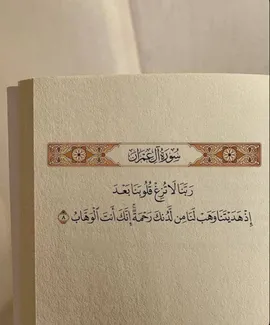 سُورَةُ آلِ عِمْرَانَ
رَبَّنَا لَا تُزِغْ قُلُوبَنَا بَعْدَ
إِذْ هَدَيْتَنَا وَهَبْ لَنَا مِن لَّدُنكَ رَحْمَةً ۚ إِنَّكَ أَنتَ الْوَهَّابُ ٨